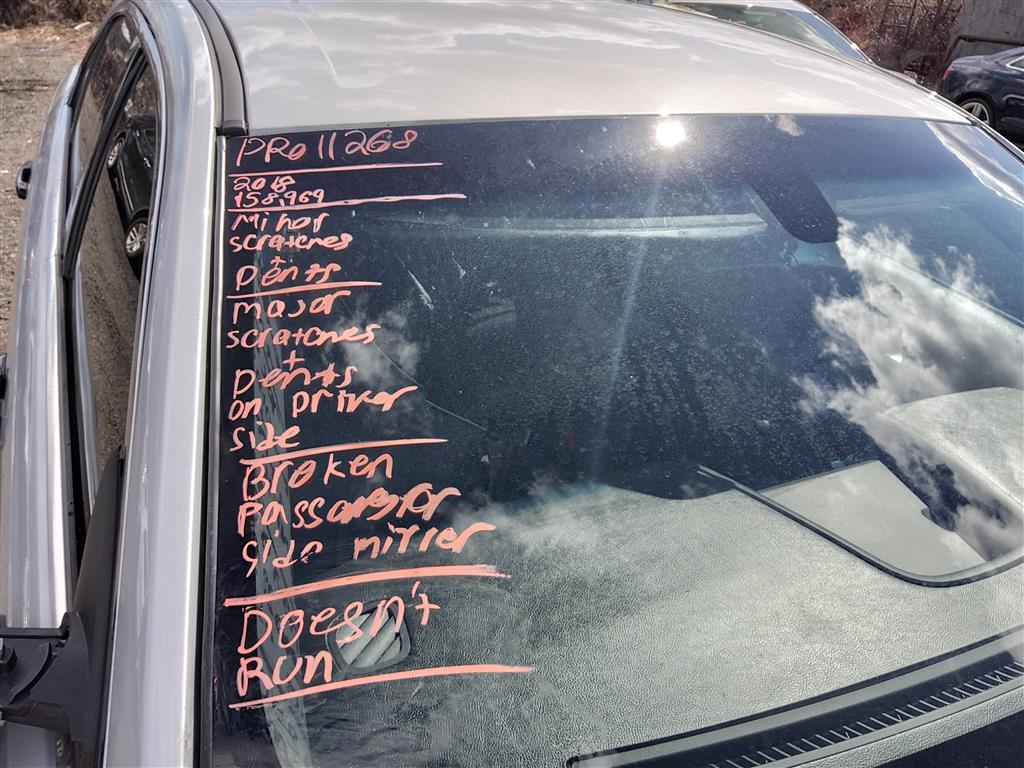 PRO11268
2018
158,969
Minor
scratches
+
Dents
major
scratches
+
Dents
on Driver
side
Broken
passanger
side mirrer
Doesn't
Run